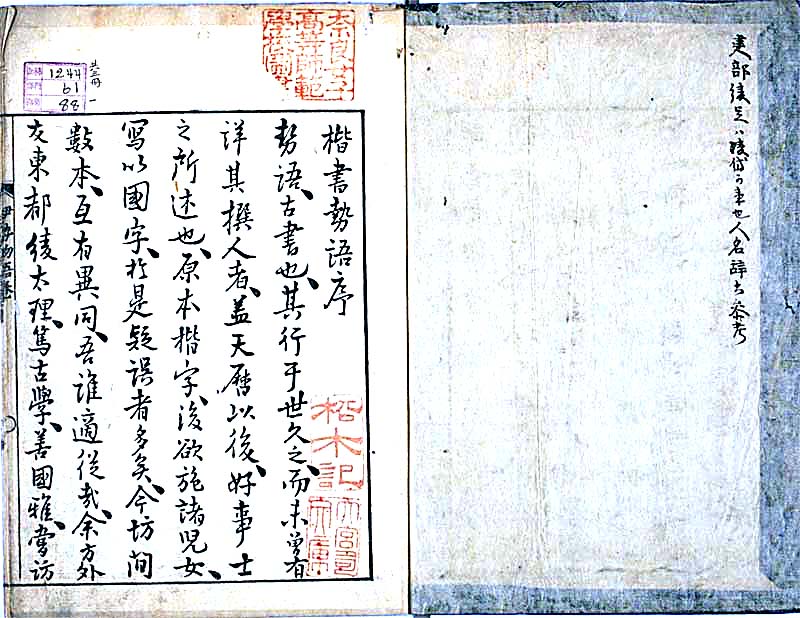 建部綾足ハ凌岱ノ事也人名辞書参考
奈良女子
高等師範
學校圖書
共三冊 一
1244
61
88
楷書勢語序
勢語、古書也、其行于世久之、而未曽有
詳其撰人者、蓋天暦以後、好事士
之所述也、原本楷字、後欲施諸児女、
写以國字、於是疑誤者多矣、今坊間
數本、互有異同、吾誰適從哉、余方外
友東都綾太理、篤古學、善國雅、嘗訪
松木記